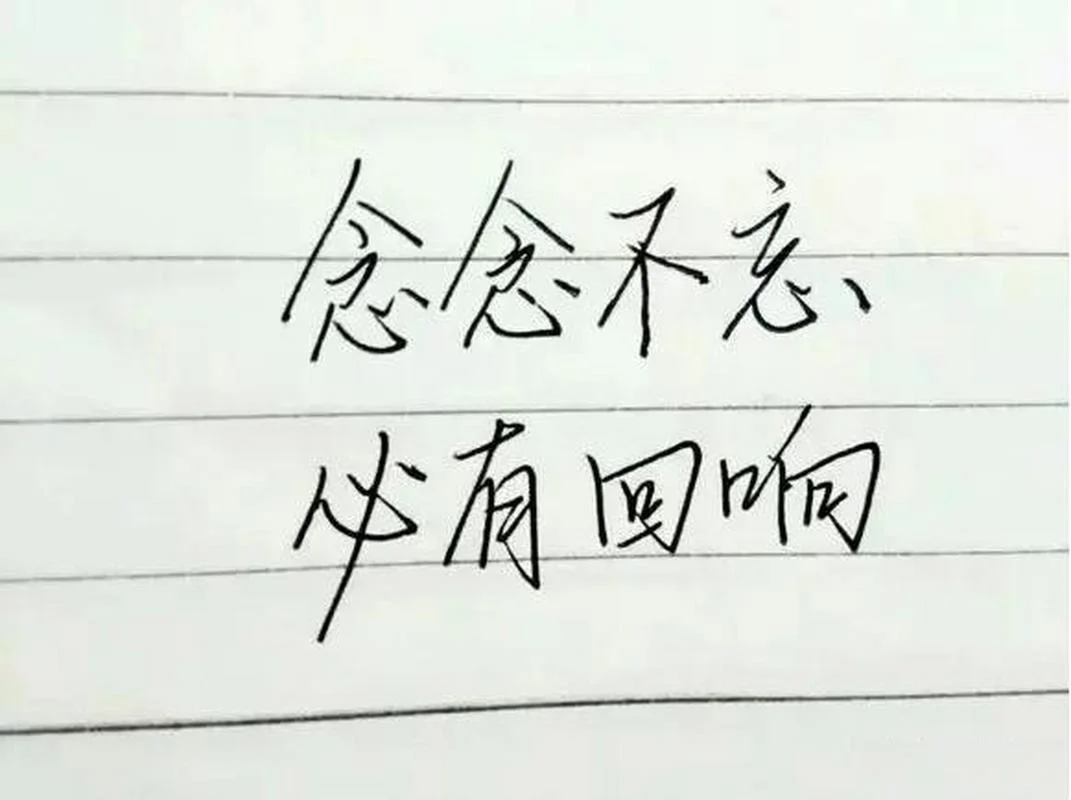 念念不忘、
必有回响